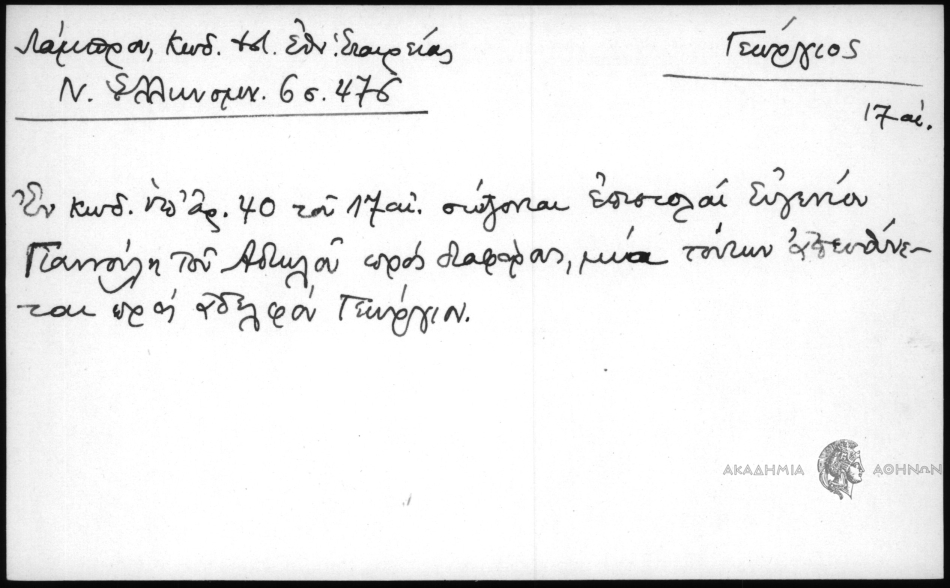 Λάμπρου, Κωδ. Ἱστ. Ἐθν. Ἑταιρείας
Ν. Ἑλληνομν. 6 σ. 476
Γεώργιος
17 αἰ.
Ἐν κωδ. ὑπ' ἀρ. 40 τοῦ 17 αἰ. σώζονται ἐπιστολαί Εὐγενίου
Γιαννούλη τοῦ Αἰτωλοῦ πρός διαφόρους, μία τούτων ἀπευθύνε-
ται πρός ἀδελφόν Γεώργιον.
ΑΚΑΔΗΜΙΑ ΑΘΗΝΩΝ